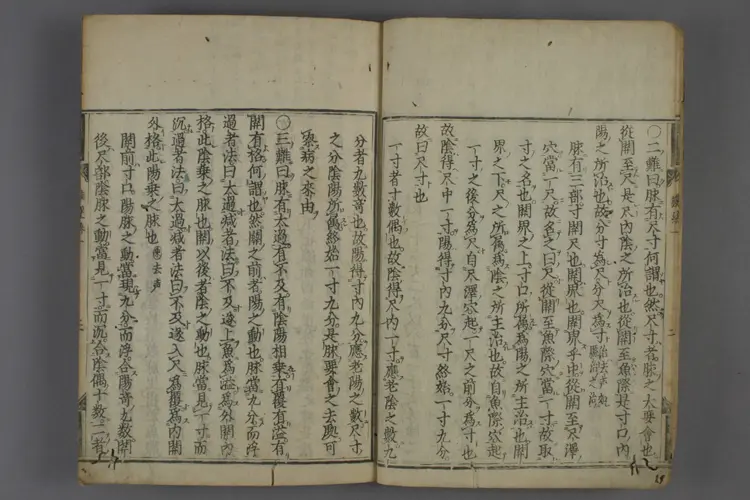 〇二難曰脉有尺寸何謂也然尺寸者脉之大要會也
從關至尺是尺內陰之所治也從關至魚際是寸口內
陽之所治也故分寸為尺分尺為寸
脉有三部寸關尺也關界也關界乎中從關至尺澤
穴當一尺故名之曰尺從關至魚際穴當一寸故取
寸之名也關界之上寸口所屬為陽之所主治也關
界之下尺之所屬為陰之所主治也故自魚際穴起
一寸之後分為尺自尺澤穴起一尺之前分為寸也
故陰得尺中一寸陽得寸內九分尺寸終始一寸九分
故曰尺寸也
一寸者十數偶也故陰得尺內一寸應老陰之數九
分者九數奇也故陽得寸內九分應老陽之數尺寸
之分陰陽所屬終始一寸九分是脉要會之去處可
察病之來由
〇三難曰脉有太過有不及有陰陽相乗有覆有溢有
關有格何謂也然關之前者陽之動也脉當九分而浮
過者法曰太過減者法曰不及遂上魚為溢為外關內
格此陰乗之脉也關以後者陰之動也脉當見一寸而
沉過者法曰太過減者法曰不及遂入尺為覆為內關
外格此陽乗之脉也
關前寸口陽脉之動當現九分而浮合陽奇九數關
後尺部陰脉之動當見一寸而沉合陰偶十數一有